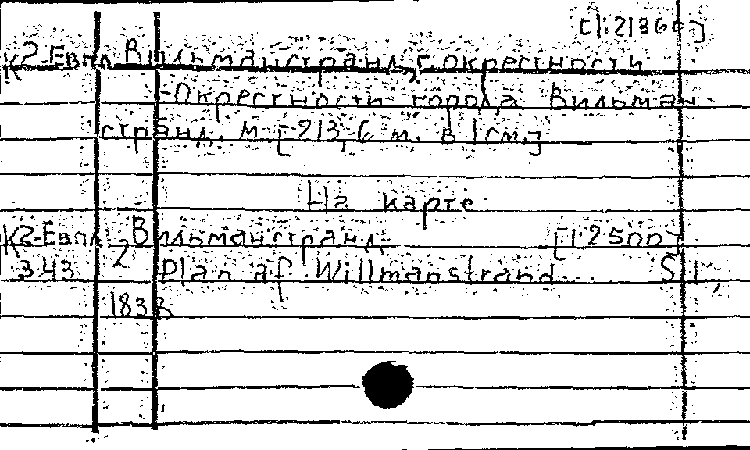 [1:21360]
К2-Евпл Вильманстранд, г. окрестности
Окрестности города Вильман-
странд. М. [213,6 м. в 1 см.]
На карте
К2-Евпл Вильманстранд. [1:2500]
3.43 2 Plan af Willmanstrand... S.l.,
1838